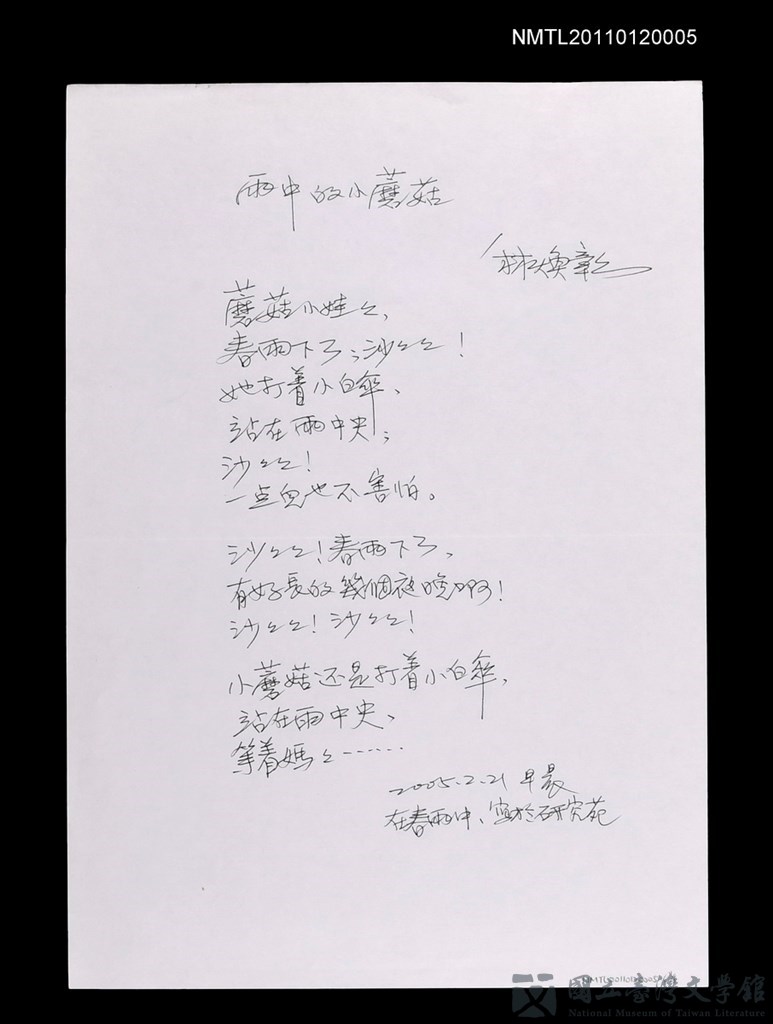 NMTL20110120005
雨中的小蘑菇
林煥彰
蘑菇小娃々,
春雨下了;沙々々!
她打着小白傘、
站在雨中央;
沙々々!
一点兒也不害怕。
沙々々!春雨下了、
有好長的幾個夜晚啊!
沙々々!沙々々!
小蘑菇还是打着小白傘,
站在雨中央、
等着媽々……
2005.2.21 早晨
在春雨中、寫於研究苑
國立臺灣文學館
National Museum of Taiwan Literature